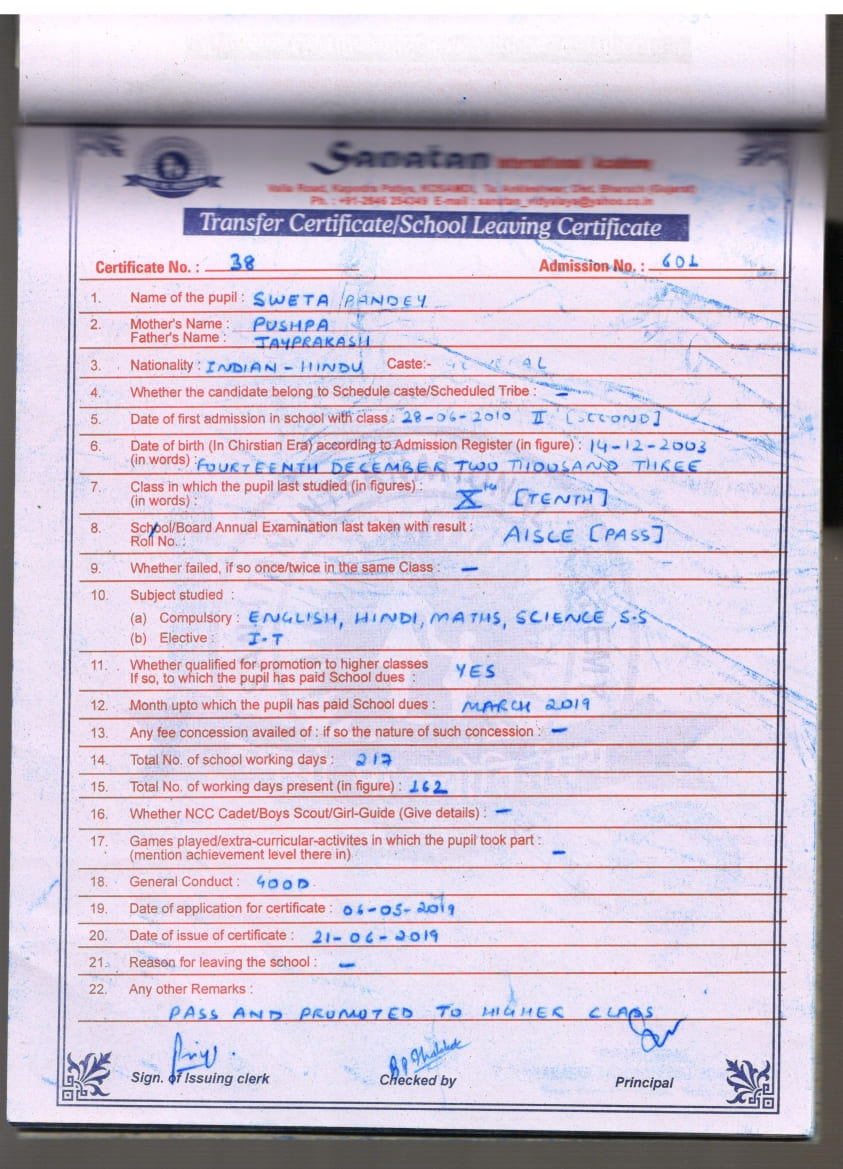 Sanatan International Academy
Valia Road, Kapodra Patiya, KOSAMDI, Ta. Ankleshwar, Dist. Bharuch (Gujarat)
Ph. : +91-2646 254349 E-mail : sanatan_vidyalaya@yahoo.co.in
Transfer Certificate/School Leaving Certificate
Certificate No. : 38 Admission No. : 601
1. Name of the pupil : SWETA PANDEY
2. Mother's Name : PUSHPA
Father's Name : JAYPRAKASH
3. Nationality : INDIAN - HINDU Caste:- GENERAL
4. Whether the candidate belong to Schedule caste/Scheduled Tribe : —
5. Date of first admission in school with class : 28-06-2010 II [SECOND]
6. Date of birth (In Chirstian Era) according to Admission Register (in figure) : 14-12-2003
(in words) : FOURTEENTH DECEMBER TWO THOUSAND THREE
7. Class in which the pupil last studied (in figures) :
(in words) : Xth [TENTH]
8. School/Board Annual Examination last taken with result : AISCE [PASS]
Roll No. :
9. Whether failed, if so once/twice in the same Class : —
10. Subject studied :
(a) Compulsory : ENGLISH, HINDI, MATHS, SCIENCE, S.S
(b) Elective : I.T
11. Whether qualified for promotion to higher classes YES
If so, to which the pupil has paid School dues :
12. Month upto which the pupil has paid School dues : MARCH 2019
13. Any fee concession availed of : if so the nature of such concession : —
14. Total No. of school working days : 217
15. Total No. of working days present (in figure) : 162
16. Whether NCC Cadet/Boys Scout/Girl-Guide (Give details) : —
17. Games played/extra-curricular-activites in which the pupil took part :
(mention achievement level there in) —
18. General Conduct : GOOD
19. Date of application for certificate : 06-05-2019
20. Date of issue of certificate : 21-06-2019
21. Reason for leaving the school : —
22. Any other Remarks :
PASS AND PROMOTED TO HIGHER CLASS
Sign. of Issuing clerk Checked by Principal